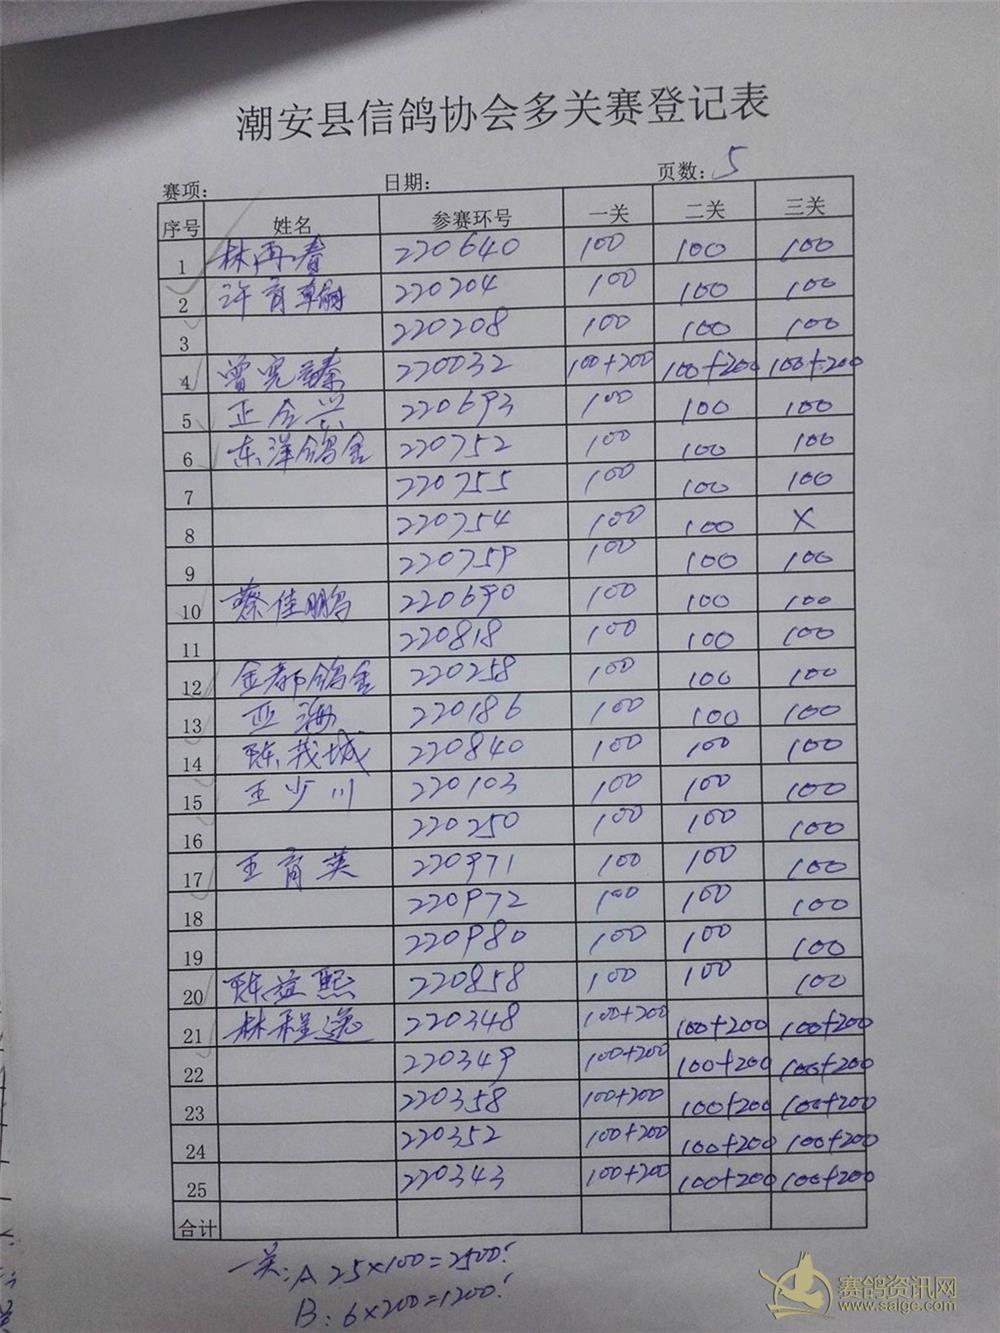 潮安县信鸽协会多关赛登记表
赛项: 日期: 页数: 5
序号 姓名 参赛环号 一关 二关 三关
1 林再春 220640 100 100 100
2 许育翰 220204 100 100 100
3 220208 100 100 100
4 曾宪臻 220032 100+200 100+200 100+200
5 正合兴 220693 100 100 100
6 东洋鸽舍 220752 100 100 100
7 220755 100 100 100
8 220754 100 100 X
9 220759 100 100 100
10 蔡佳鹏 220690 100 100 100
11 220818 100 100 100
12 金都鸽舍 220258 100 100 100
13 亚海 220186 100 100 100
14 陈茂城 220840 100 100 100
15 王少川 220103 100 100 100
16 220250 100 100 100
17 王育英 220971 100 100 100
18 220972 100 100 100
19 220980 100 100 100
20 陈益熙 220858 100 100 100
21 林程逸 220348 100+200 100+200 100+200
22 220349 100+200 100+200 100+200
23 220358 100+200 100+200 100+200
24 220352 100+200 100+200 100+200
25 220343 100+200 100+200 100+200
合计
一关: A 25×100=2500!
B: 6×200=1200!
赛鸽资讯网
www.saige.com